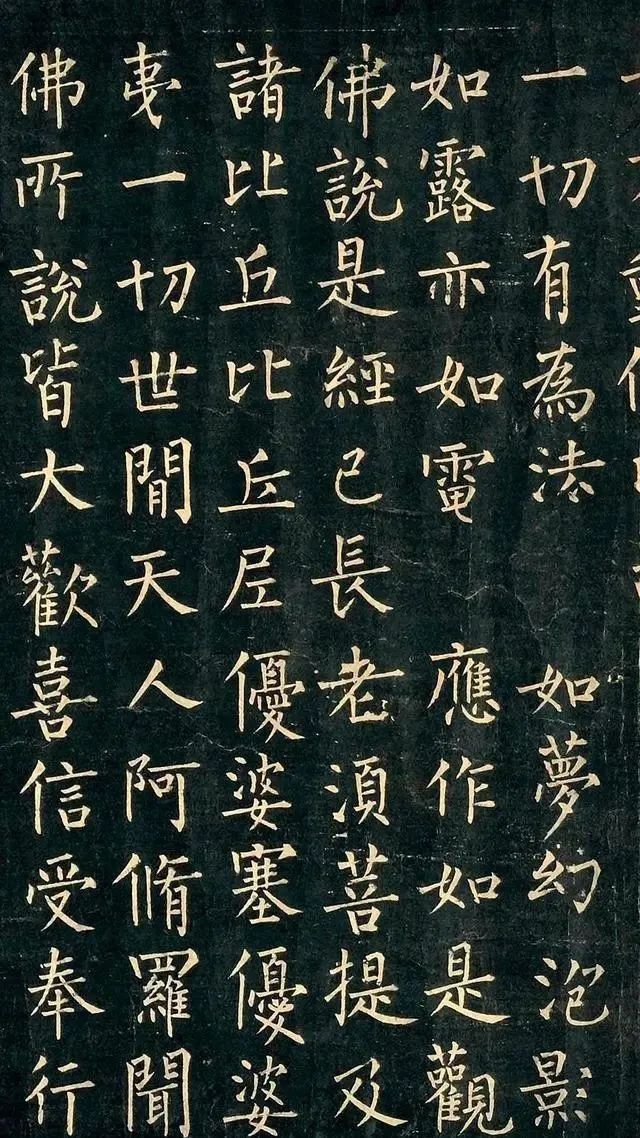 一切有為法 如夢幻泡影
如露亦如電 應作如是觀
佛說是經已長老湏菩提及
諸比丘比丘尼優婆塞優婆
夷一切世閒天人阿脩羅聞
佛所說皆大歡喜信受奉行